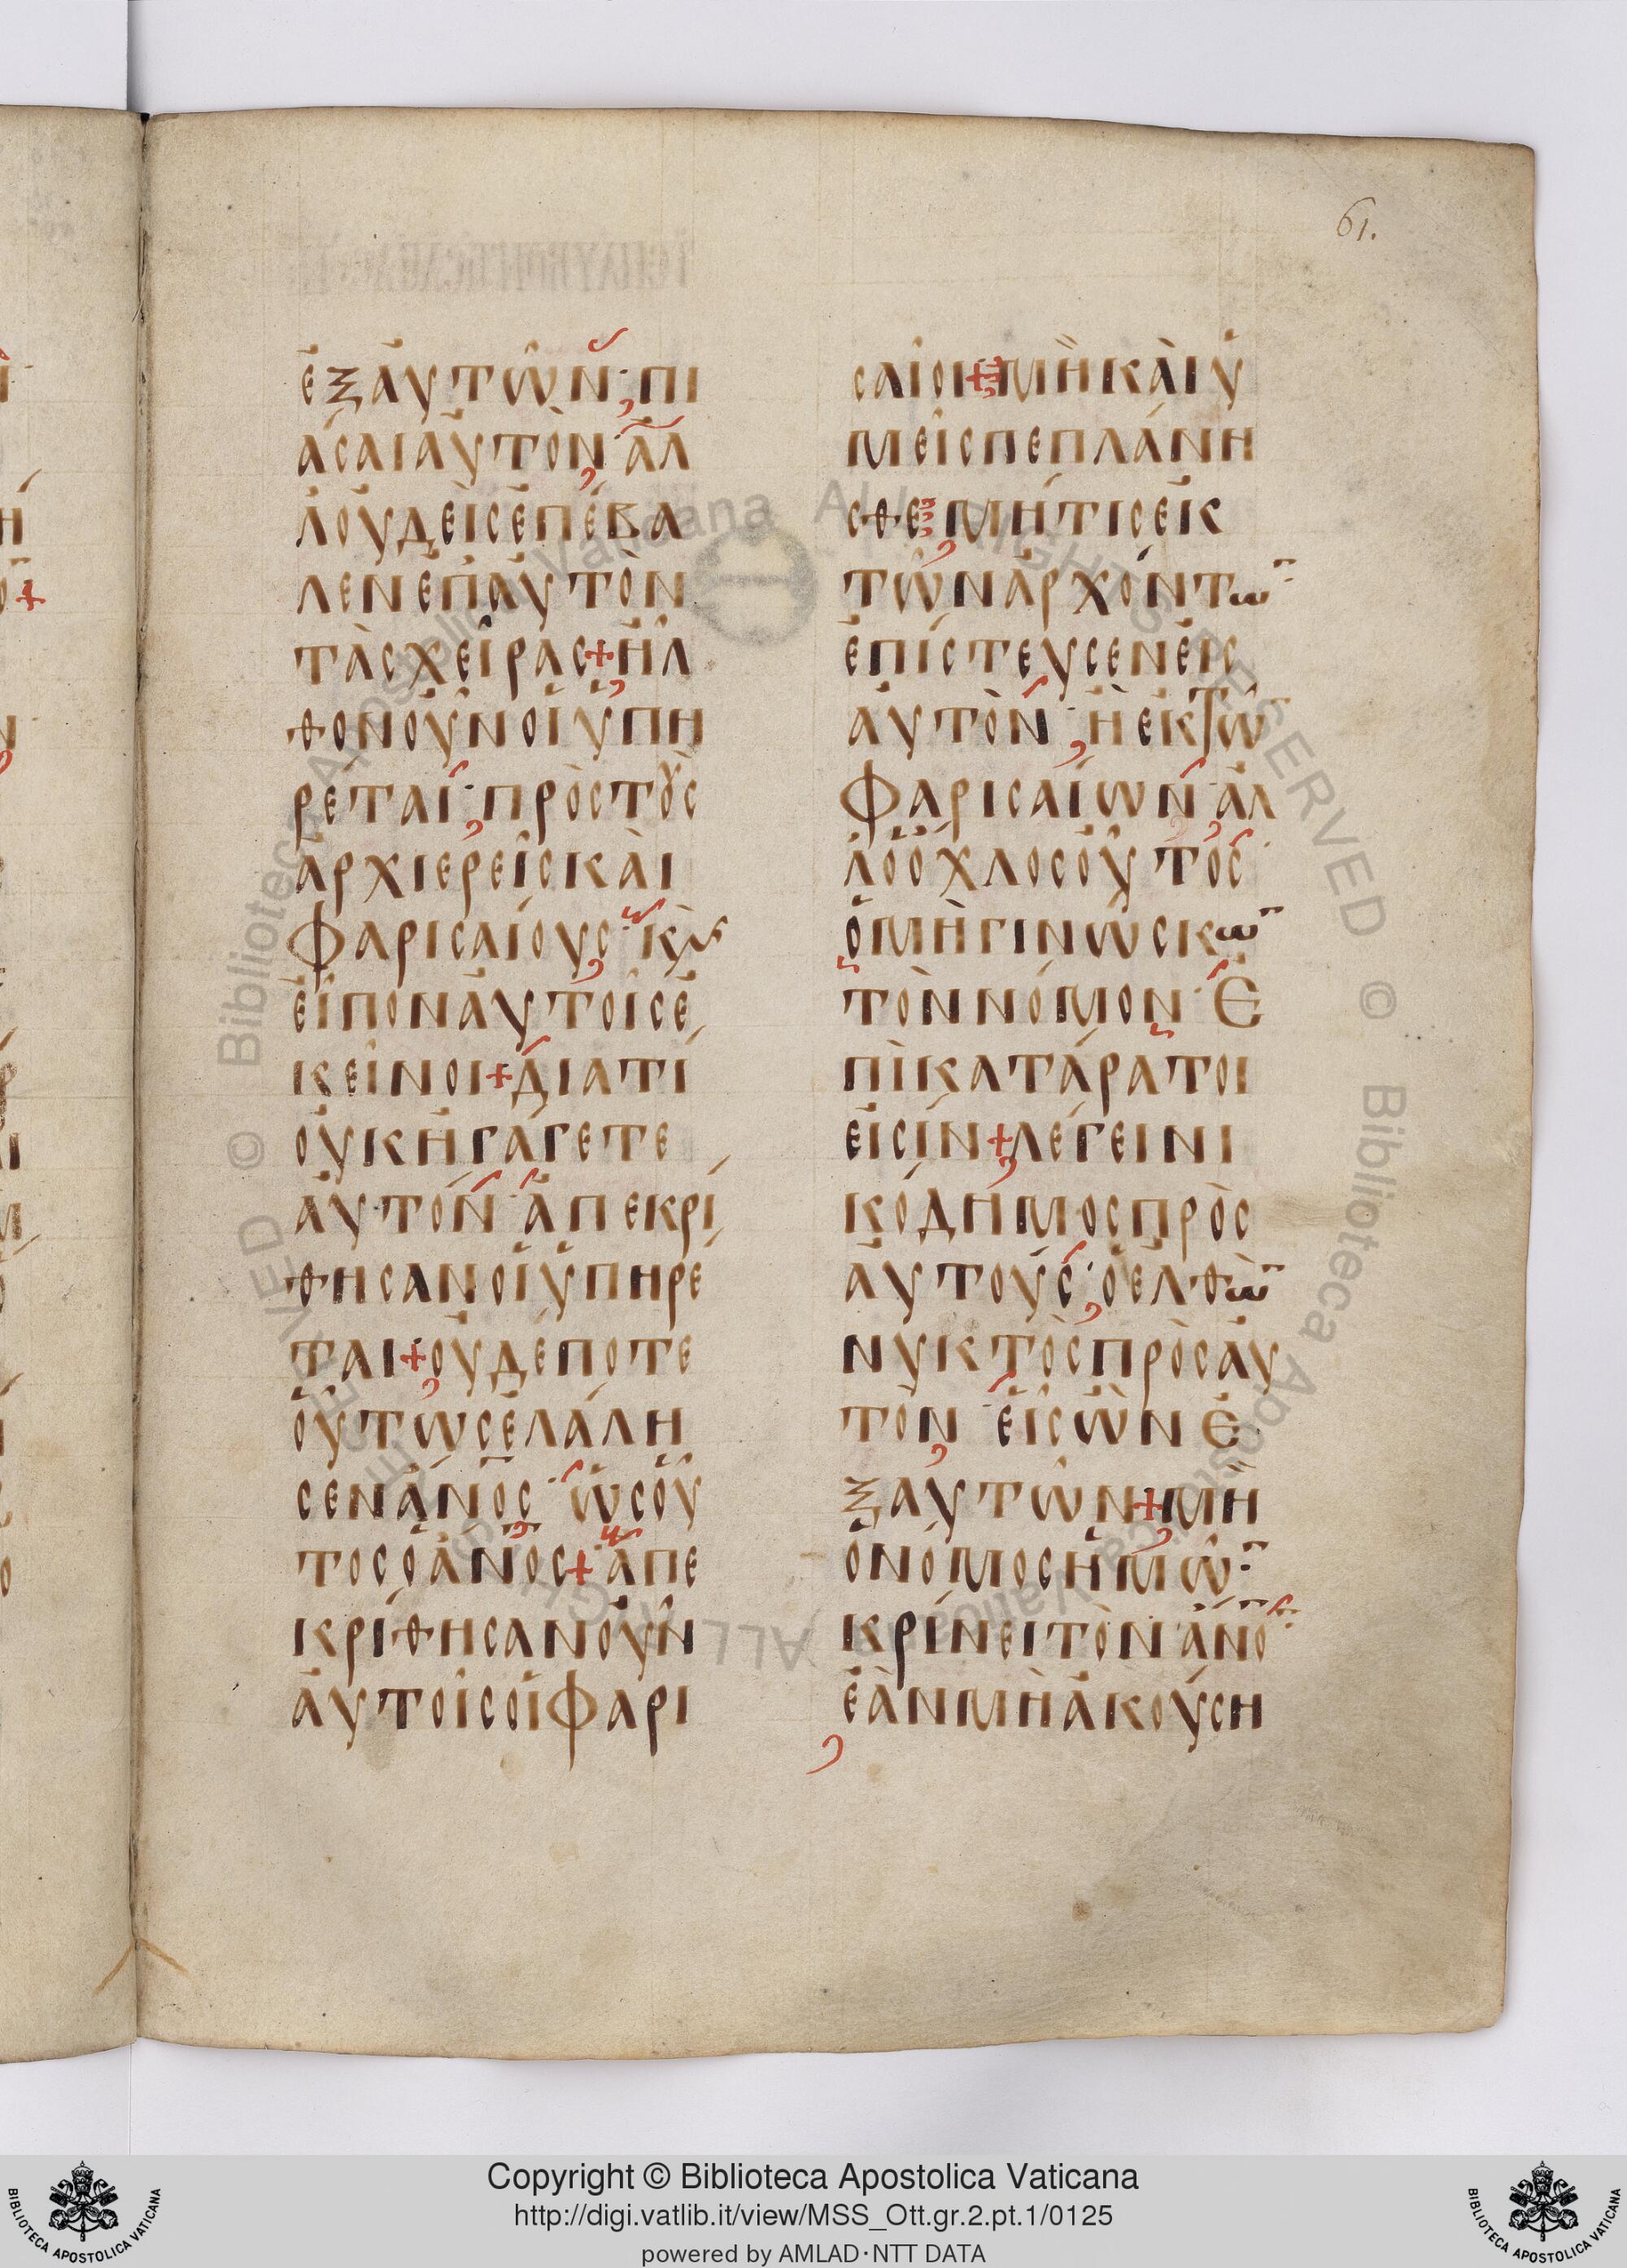 61.
ἐξ ἀυτῶν· πι
άσαι ἀυτὸν· ἀλ
λ' οὐδεὶς ἐπέβα
λεν ἐπ' ἀυτὸν
τὰς χεῖρας + ἦλ
θον οὖν οἱ ὑπη
ρέται· πρὸς τοὺς
ἀρχιερεῖς καὶ
φαρισαίους· κὶ
εἶπον ἀυτοῖς ἐ
κεῖνοι + διατί
οὐκ ἠγάγετε
ἀυτόν· ἀπεκρί
θησαν οἱ ὑπηρέ
ται + οὐδέποτε
οὕτως ἐλάλη
σεν ἄνος· ὡς οὗ
τος ὁ ἄνος + ἀπε
κρίθησαν οὖν
ἀυτοῖς οἱ φαρι
σαῖοι + μὴ καὶ ὑ
μεῖς πεπλάνη
σθε μή τις ἐκ
τῶν ἀρχόντω̅
ἐπίστευσεν εἰς
ἀυτὸν· ἢ ἐκ τῶ
φαρισαίων· ἀλ
λ' ὁ ὄχλος οὗτος·
ὁ μὴ γινώσκω̅
τὸν νόμον· ἐ
πικατάρατοι
εἰσίν + λέγει νι
κόδημος πρὸς
ἀυτούς· ὁ ἐλθὼ̅
νυκτὸς πρὸς ἀυ
τὸν· εἷς ὢν ἐ
ξ ἀυτῶν + μὴ
ὁ νόμος ἡμῶ̅
κρίνει τὸν ἄνο̅·
ἐὰν μὴ ἀκούση
Copyright © Biblioteca Apostolica Vaticana
http://digi.vatlib.it/view/MSS_Ott.gr.2.pt.1/0125
powered by AMLAD·NTT DATA
BIBLIOTECA APOSTOLICA VATICANA
BIBLIOTECA APOSTOLICA VATICANA